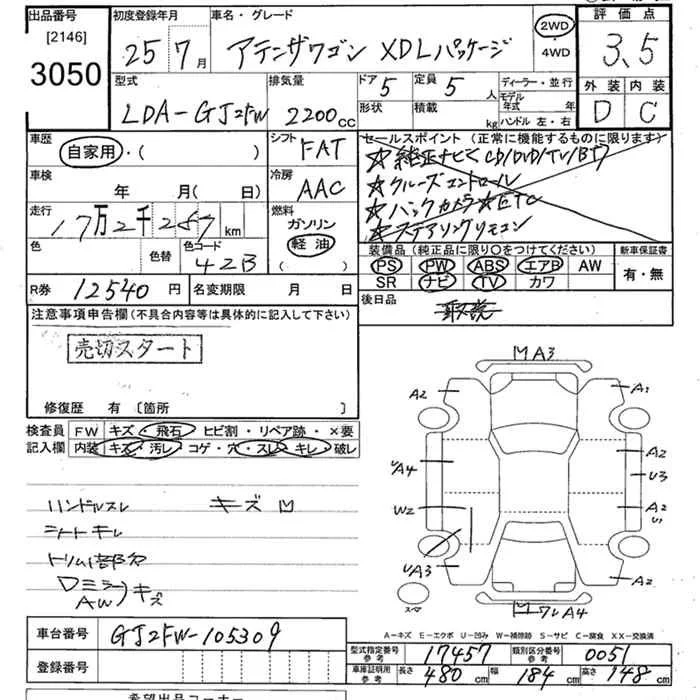 出品番号
[2146]
3050
初度登録年月
25 7月
車名・グレード
アテンザワゴン XDLパッケージ
2WD
4WD
評価点
3.5
外装 内装
D C
型式
LDA-GJ2FW
排気量
2200cc
ドア 5
形状
定員 5人
積載 kg
ディーラー・並行
モデル年式 年
ハンドル 左・右
車歴
自家用・( )
シフト
FAT
セールスポイント (正常に機能するものに限ります)
☆純正ナビ CD/DVD/TV/BT
☆クルーズコントロール
☆バックカメラ☆ETC
☆ステアリングリモコン
車検
年 月 ( 日)
冷房
AAC
走行
17万2千287km
燃料
ガソリン
軽油
( )
色
色替
色コード
42B
装備品 (純正品に限り○をつけてください)
PS PW ABS エアB AW
SR ナビ TV カワ
新車保証書
有・無
R券 12540円
名変期限 月 日
後日品
取説
注意事項申告欄(不具合内容等は具体的に記入して下さい)
売切スタート
修復歴 有 [箇所 ]
検査員記入欄
FW キズ・飛石 ヒビ割・リペア跡・×要
内装 キズ・汚レ・コゲ・穴・スレ・キレ・破レ
ハンドルスレ キズ凹
シートキレ
AW キズ
A3
A2 A1
A4 A2
U3
W2 A2
A3 A2
スペア
A4
A-キズ E-エクボ U-凹み W-補修跡 S-サビ C-腐食 XX-交換済
車台番号 GJ2FW-105309
登録番号
型式指定番号 参考 17457
類別区分番号 参考 0051
車庫証明用 参考 長さ 480cm 幅 184cm 高さ 148cm
希望出品コーナー